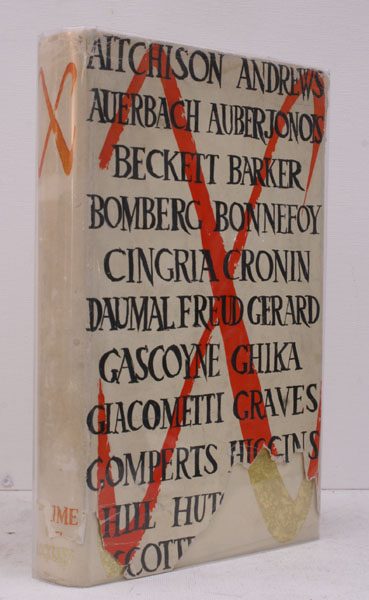 X
AITCHISON ANDREWS
AUERBACH AUBERJONOIS
BECKETT BARKER
BOMBERG BONNEFOY
CINGRIA CRONIN
DAUMAL FREUD GERARD
GASCOYNE GHIKA
GIACOMETTI GRAVES
GOMPERTS HIGGINS
HILL HUT
SCOTT